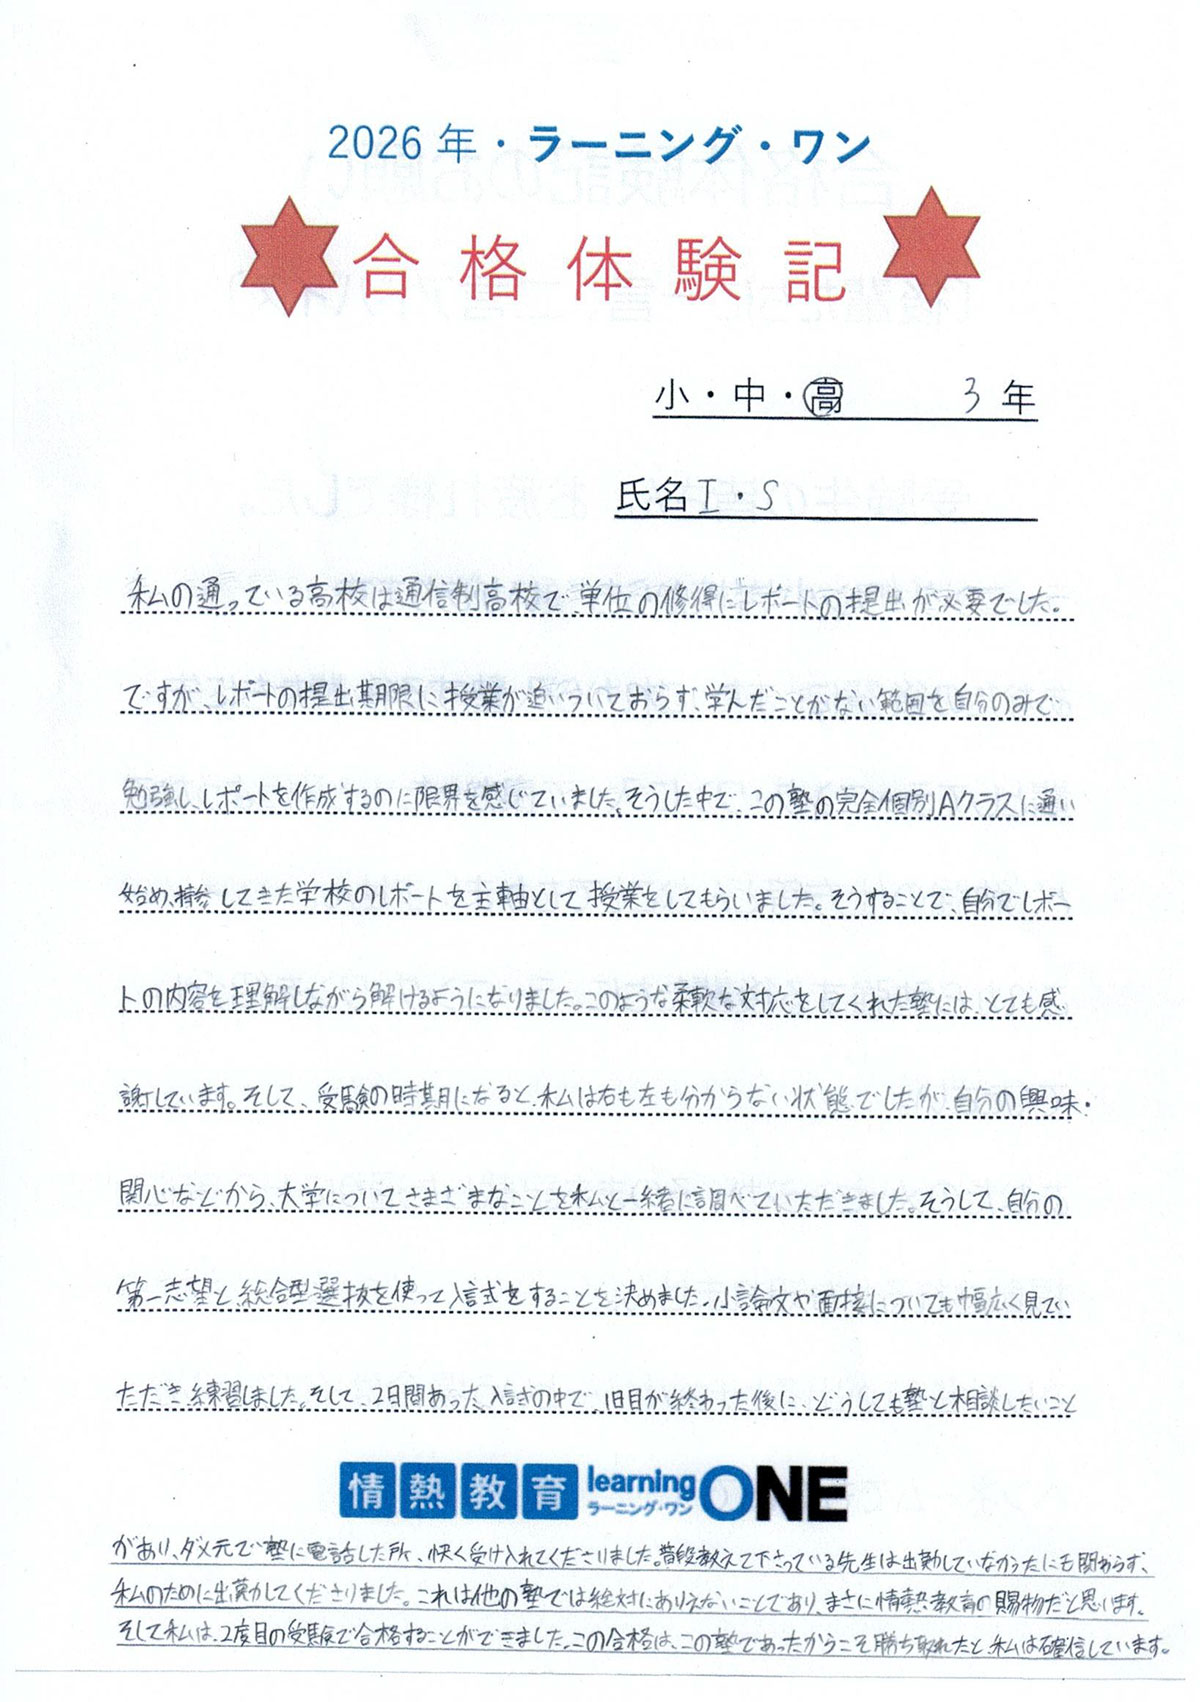 2026年・ラーニング・ワン
合格体験記
小・中・高 3年
氏名 I・S
私の通っている高校は通信制高校で単位の修得にレポートの提出が必要でした。
ですが、レポートの提出期限に授業が追いついておらず、学んだことがない範囲を自分のみで
勉強し、レポートを作成するのに限界を感じていました。そうした中で、この塾の完全個別Aクラスに通い
始め、持参してきた学校のレポートを主軸として授業をしてもらいました。そうすることで、自分でレポー
トの内容を理解しながら解けるようになりました。このような柔軟な対応をしてくれた塾には、とても感
謝しています。そして、受験の時期になると、私は右も左も分からない状態でしたが、自分の興味・
関心などから、大学についてさまざまなことを私と一緒に調べていただきました。そうして、自分の
第一志望と、総合型選抜を使って入試をすることを決めました。小論文や面接についても幅広く見てい
ただき練習しました。そして、2日間あった入試の中で、1日目が終わった後に、どうしても塾と相談したいこと
情熱教育 learning ONE
ラーニング・ワン
があり、ダメ元で塾に電話した所、快く受け入れてくださりました。普段教えて下さっている先生は出勤していなかったにも関わらず、
私のために出勤してくださりました。これは他の塾では絶対にありえないことであり、まさに情熱教育の賜物だと思います。
そして私は、2度目の受験で合格することができました。この合格は、この塾であったからこそ勝ち取れたと、私は確信しています。